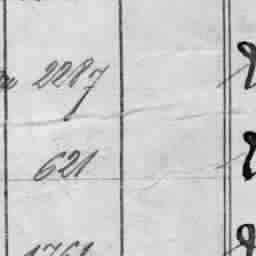 2287
621
1761